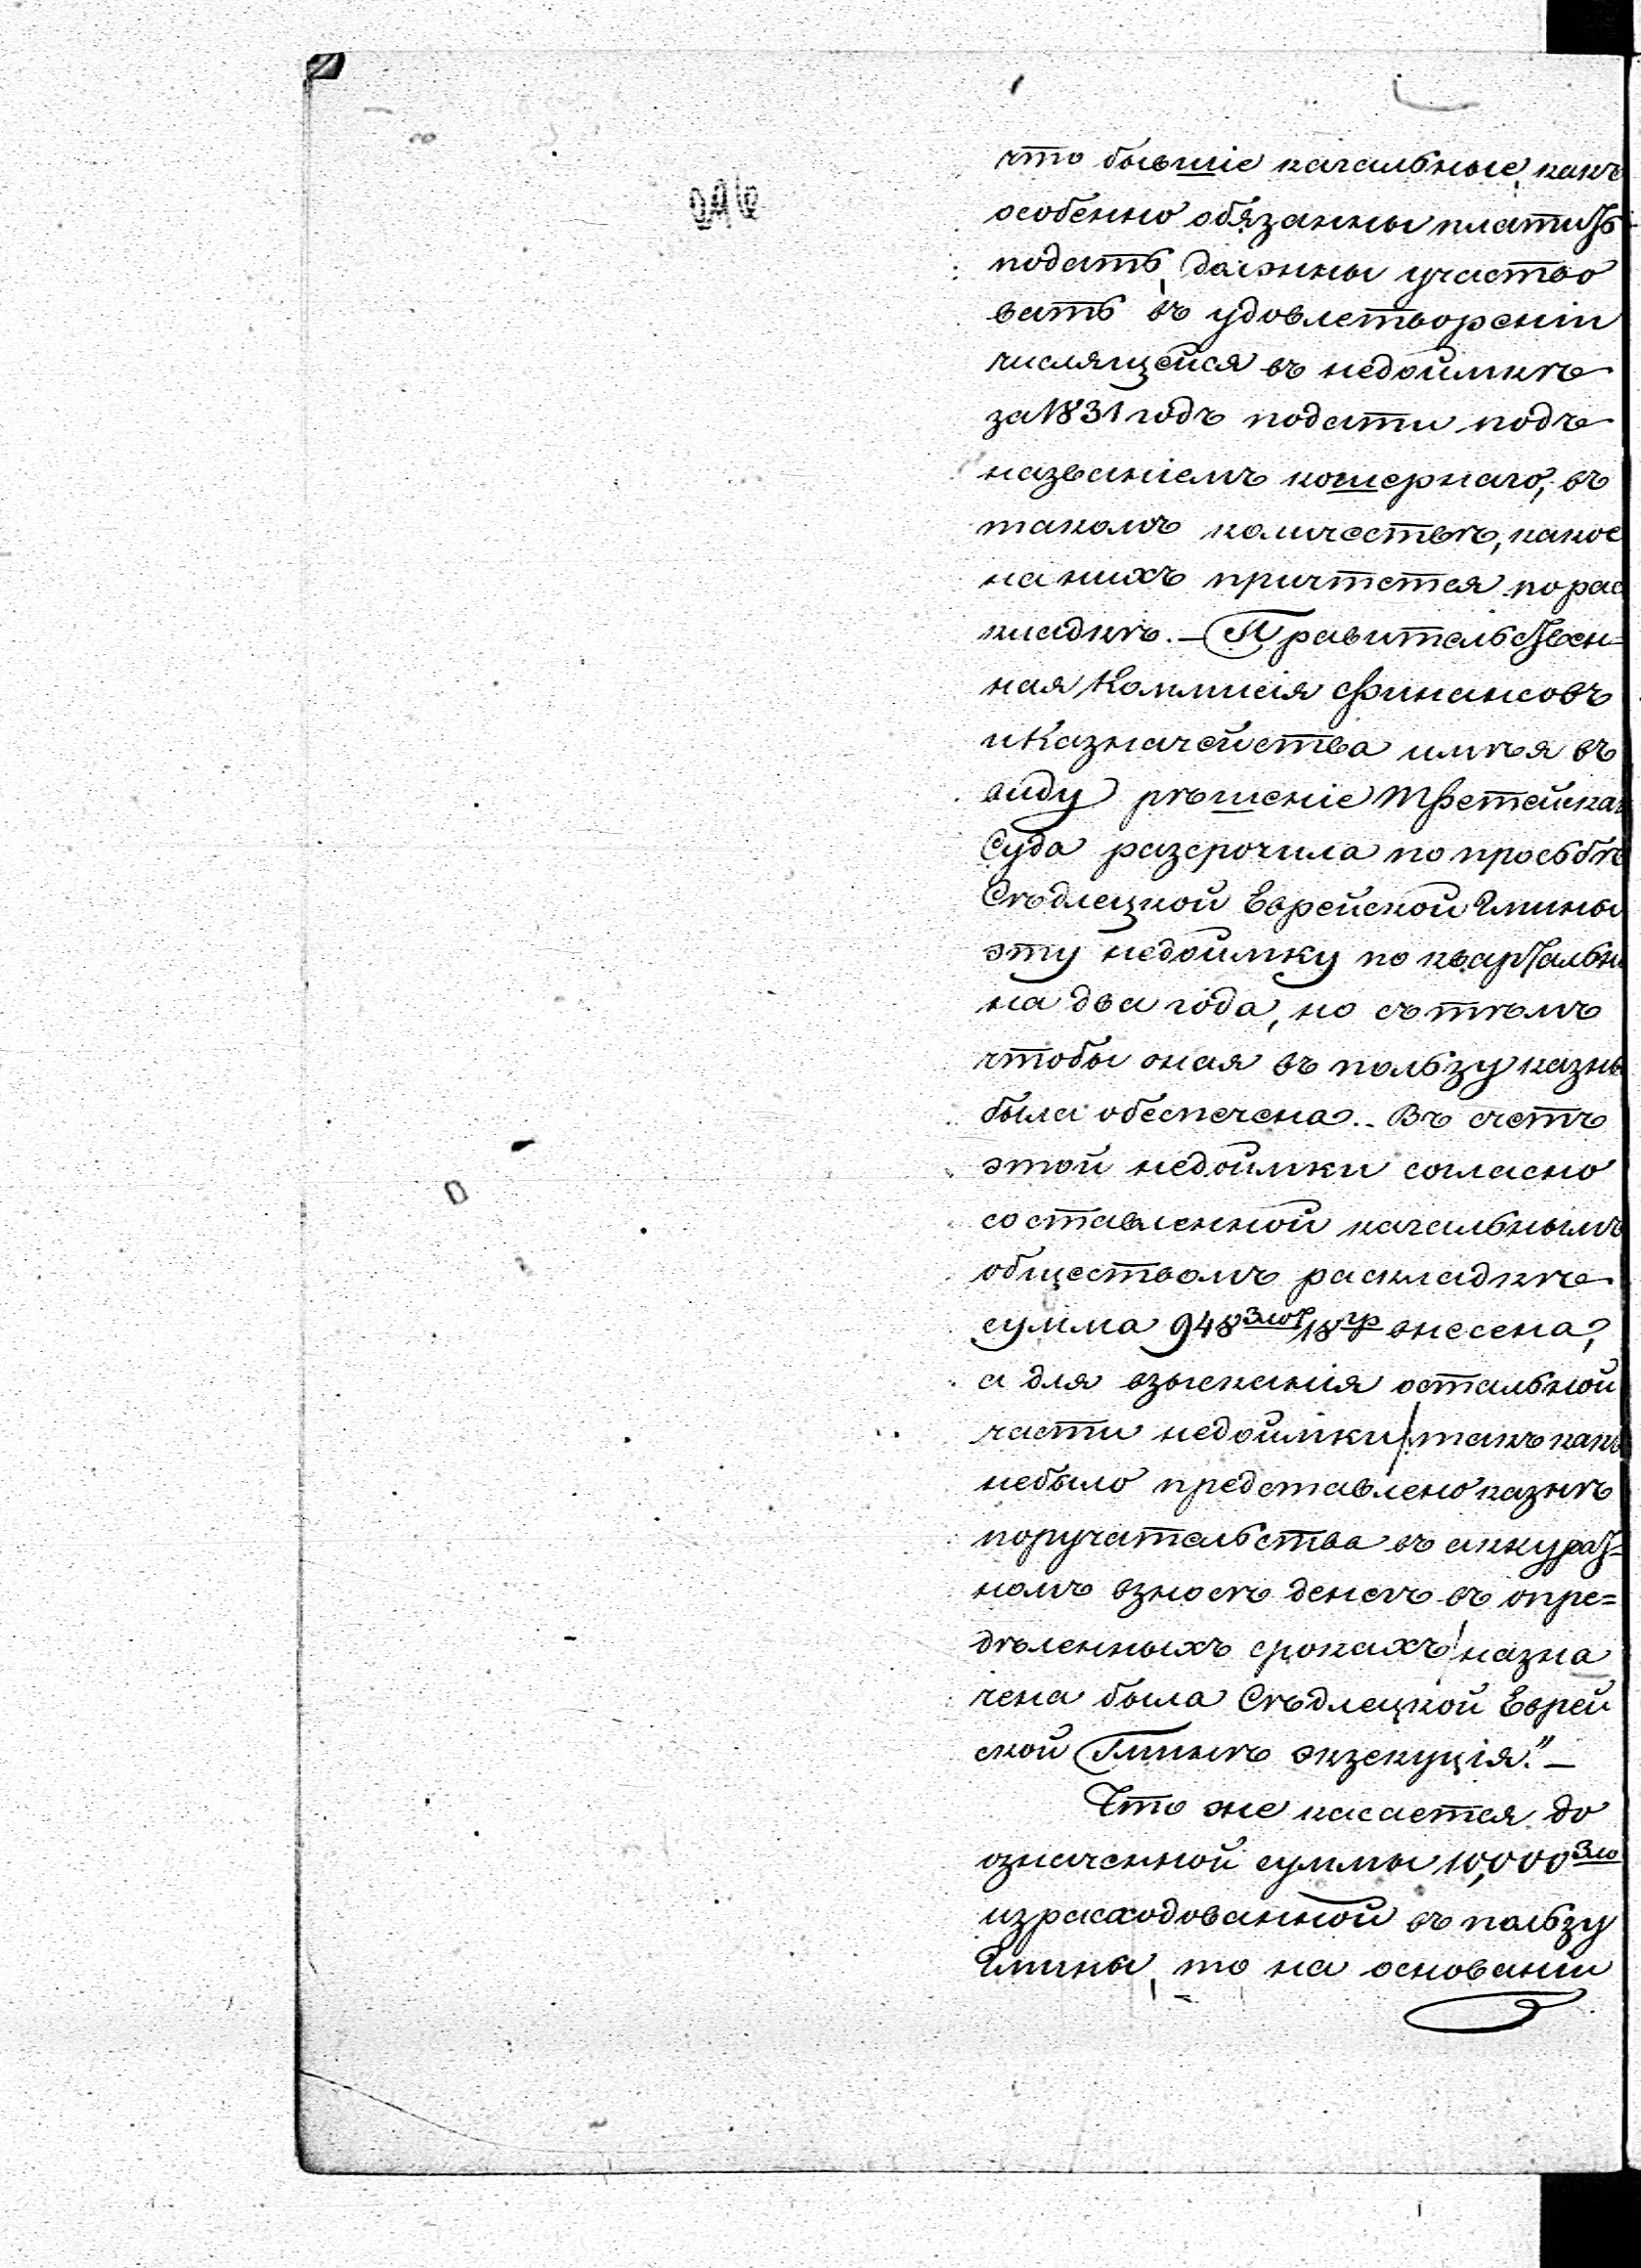 что бывшіе кагальные, какъ
особенно обязанны платить
подать, должны участво
вать въ удовлетвореніи
числящейся въ недоимкѣ
за 1831 годъ подати подъ
названіемъ кошернаго, въ
такомъ количествѣ, какое
на нихъ причтется по рас
кладкѣ. — Правительствен=
ная Коммисія Финансовъ
и Казначейства имѣя въ
виду рѣшеніе Третейска
Суда разсрочила по просьбѣ
Сѣдлецкой Еврейской Гмины
эту недоимку по квартально
на два года, но съ тѣмъ
чтобы оная въ пользу казны
была обеспечена. – Въ счетъ
этой недоимки согласно
составленной кагальнымъ
обществомъ раскладкѣ
сумма 948 злот 18 гр внесена,
а для взысканія остальной
части недоимки /: такъ какъ
небыло представлено казнѣ
поручательства въ аккурат=
номъ взносѣ денегъ въ опре=
дѣленныхъ срокахъ / назна
чена была Сѣдлецкой Еврей
ской Гминѣ экзекуція." —
Что же касается до
означенной суммы 10,000 Зло
израсходованной въ пользу
Гмины, то на основаніи